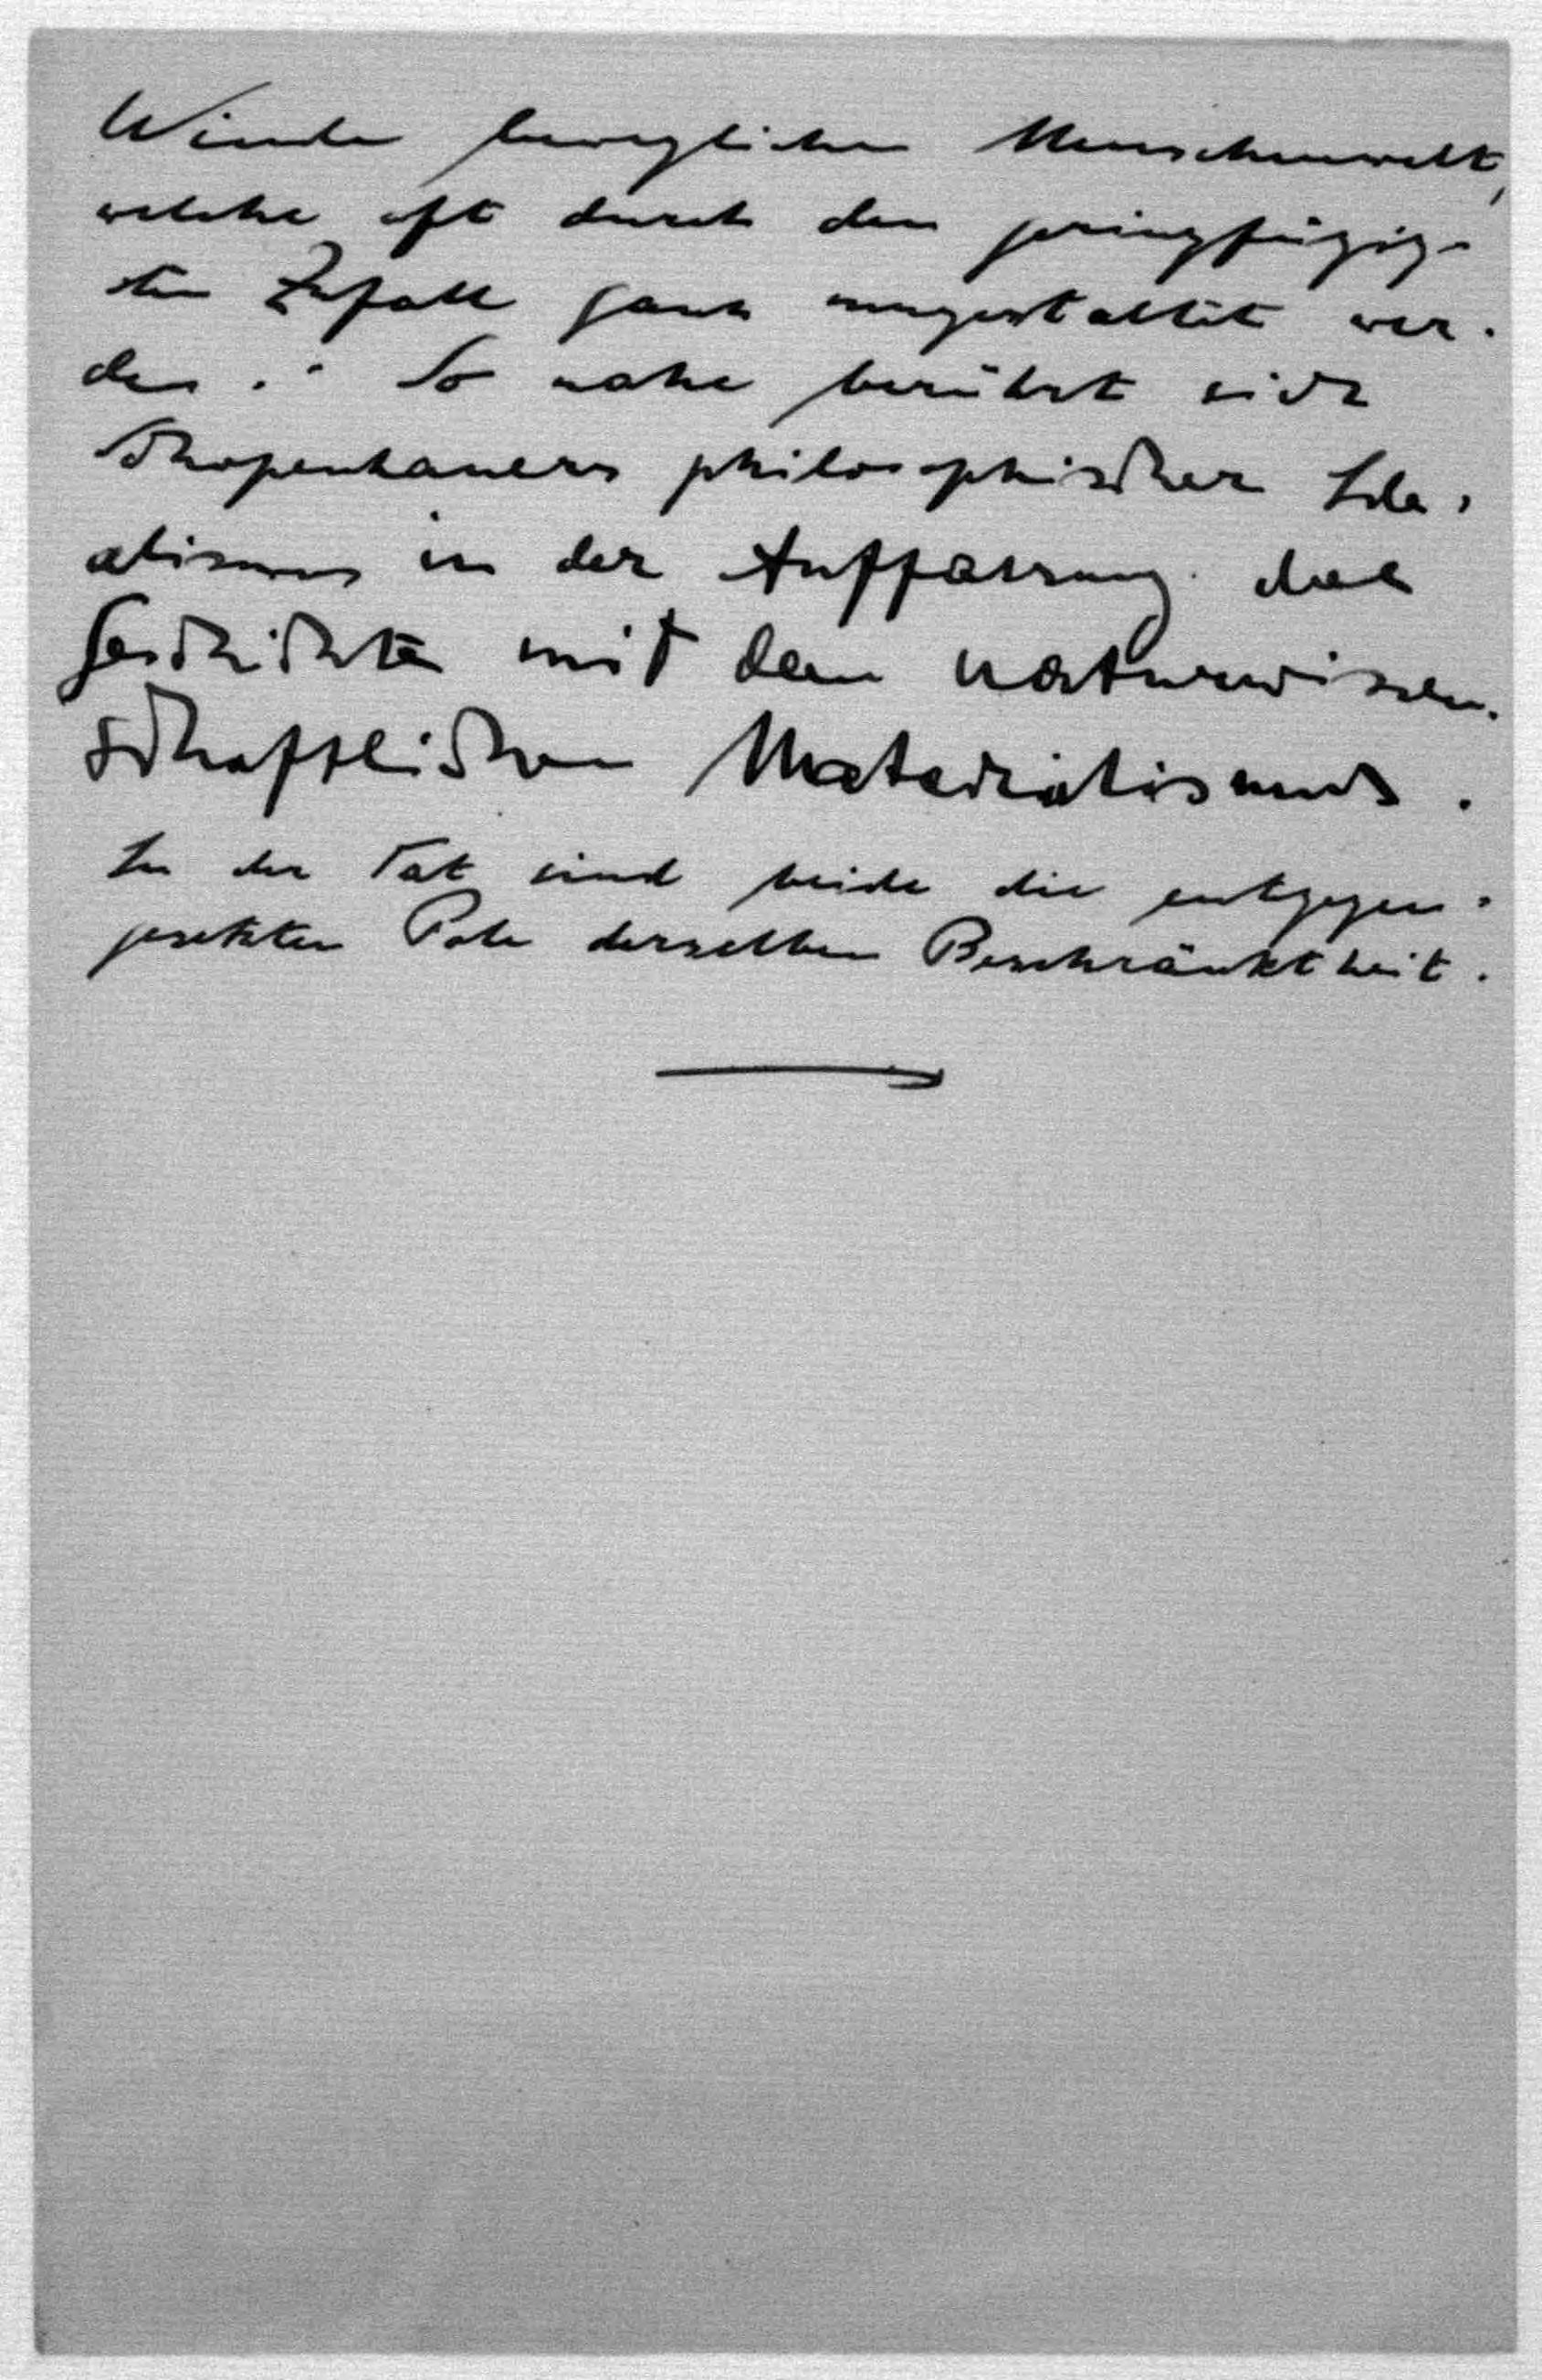 Winde beweglichen Menschenwelt,
welche oft durch den geringfügig-
sten Zufall ganz umgestaltet wer-
den." So nahe berührt sich
Schopenhauers philosophischer Ide-
alismus in der Auffassung der
Geschichte mit dem naturwissen-
schaftlichen Materialismus.
In der Tat sind beide die entgegen-
gesetzten Pole derselben Beschränktheit.